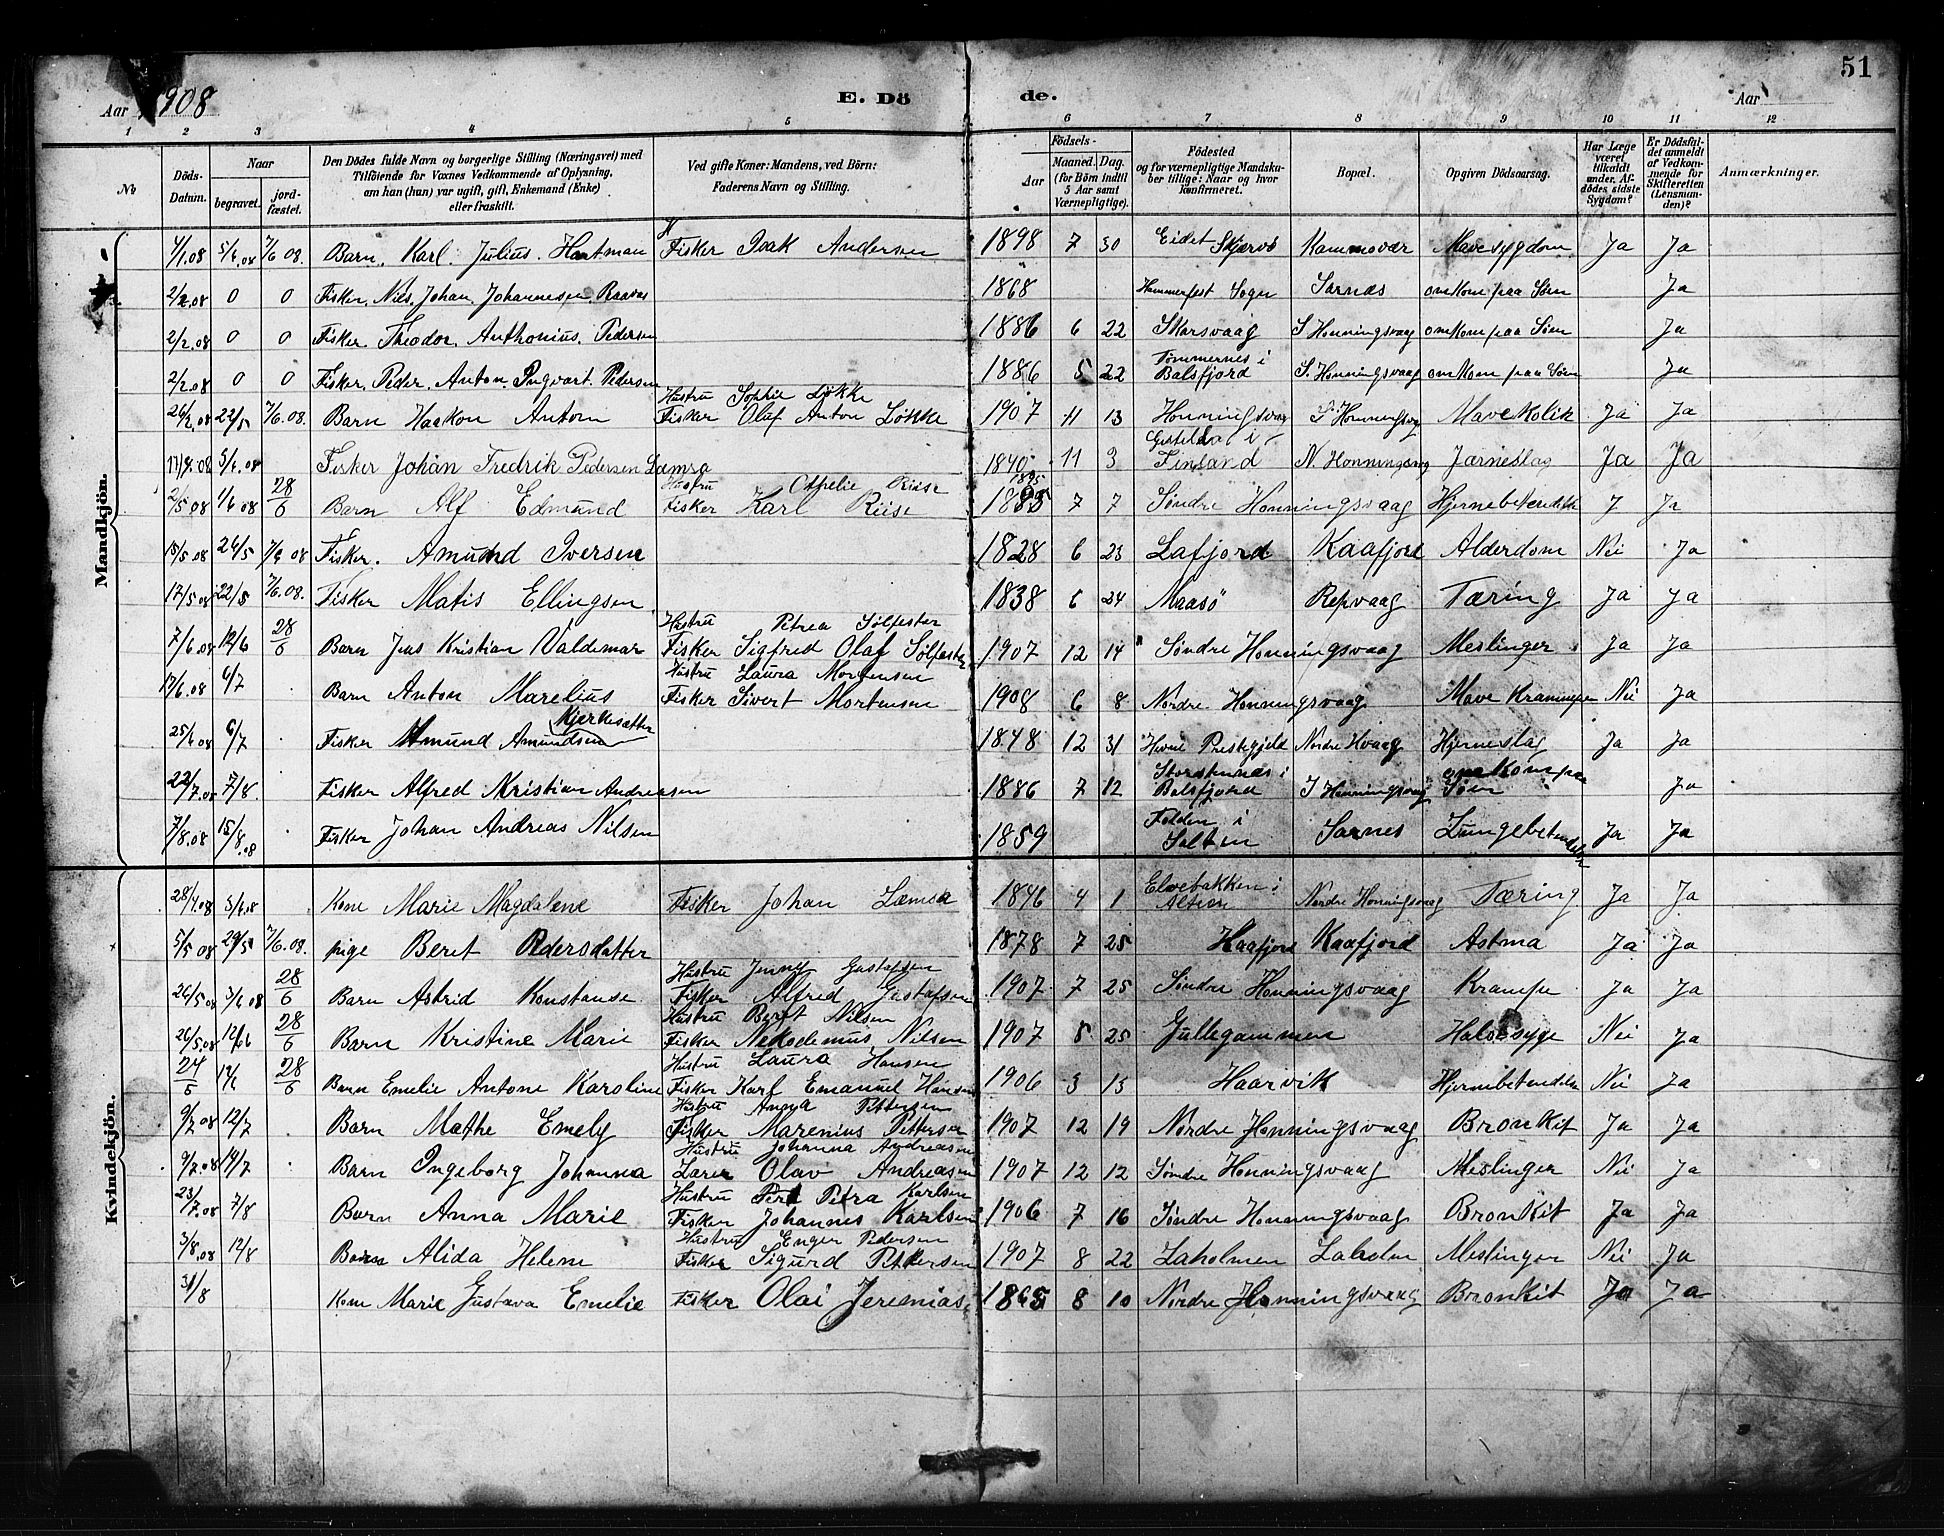 51
Aar 1908 E. Dö de. Aar
1 2 3 4 5 6 7 8 9 10 11 12
No
Döds-Datum.
Naar begravet. jordfæstet.
Den Dödes fulde Navn og borgerlige Stilling (Næringsvei) med Tilföiende for Voxnes Vedkommende af Oplysning, om han (hun) var ugift, gift, Enkemand (Enke) eller fraskilt.
Ved gifte Koner: Mandens, ved Börn: Faderens Navn og Stilling.
Födsels- Aar Maaned. Dag. (for Börn indtil 5 Aar samt Værnepligtige).
Födested og for værnepligtige Mandskaber tillige: Naar og hvor konfirmeret.
Bopæl.
Opgiven Dödsaarsag.
Har Læge været tilkaldt under Afdödes sidste Sygdom?
Er Dödsfaldet anmeldt af Vedkommende for Skifteretten (Lensmanden)?
Anmærkninger.
Mandkjön.
4/1.08 5/6.08 7/6 08. Barn. Karl. Julius. Hartman Fisker Isak Andersen 1898 7 30 Eidet Skjærvö Kamøvær Mavesygdom Ja Ja
2/2.08 0 0 Fisker. Nils. Johan. Johannesen. 1868 Hammerfest Sogn Sarnes omkom paa Søen Ja
2/2.08 0 0 Fisker. Theodor. Anthonius. Pedersen 1886 6 22 Skarsvaag S. Honningsvaag omkom paa Søen Ja
2/2.08 0 0 Fisker. Peder. Anton. Ingvart. Pedersen 1886 5 22 Tømmernes i Balsfjord S. Honningsvaag omkom paa Søen Ja
Hustru Sophie Løkke
26/2.08 22/5 7/6.08. Barn Haakon Anton Fisker Oluf Anton Løkke 1907 11 13 Honningsvaag S. Honningsvg Mavekolik Ja Ja
17/4.08 3/6.08 Fisker Johan Fredrik Pedersen Læmsa 1840 11 3 i Finland N. Honningsvg Jarneslag Ja Ja
Hustru Othelie Riise
2/5 08 1/6 08 28/6 Barn Alf Edmund Fisker Karl Riise 1895 7 7 Søndre Honningsvaag Hjernebetendelse J Ja
15/5 08 26/5 7/6 08 Fisker. Amund Iversen 1828 6 23 Lafjord Kaafjord Alderdom Nei Ja
17/5 08 22/5 7/6.08. Fisker Matis Ellingsen 1838 6 24 Maasö Repvaag Tæring Ja Ja
Hustru Petrea Sølfester
7/6.08 12/6 28/6 Barn Jens Kristian Valdemar Fisker Sigfred Olaf Sølfester 1907 12 14 Søndre Honningsvaag Meslinger Ja Ja
Hustru Laura Mortensen
17/6.08 6/7 Barn Anton Marelius Fisker Sivert Mortensen 1908 6 8 Nordre Honningsvaag Mave Krampe Nei Ja
25/6 08 6/7 Fisker Amund Amundsen Kjerkesætter 1848 12 31 Hevne Prestegjeld Nordre Hvaag Hjerneslag Ja Ja
22/7.08 7/8. Fisker Alfred Kristian Andreasen 1886 7 12 Storstennes i Balsfjord S Honningsvaag omkom paa Søen Ja
7/8.08 15/8.08 Fisker Johan Andreas Nilsen 1859 Folden i Salten Sarnes Lungebetendelse Ja Ja
Kvindekjön.
28/4.08 3/6.08 Kone Marie Magdalene Fisker Johan Læmsa 1846 4 1 Elvebakken i Alten Nordre Honningsvaag Tæring Ja Ja
5/5 08 29/5 7/6.08. pige Beret Pedersdatter 1878 7 25 Kaafjord Kaafjord Astma Ja Ja
Hustru Jenny Gustafsen
26/5.08 3/6 08 28/6 Barn Astrid Konstanse Fisker Alfred Gustafsen 1907 7 25 Søndre Honningsvaag Krampe Ja Ja
Hustru Beret Nilsen
26/5.08 12/6 28/6 Barn Kristine Marie Fisker Nekodemus Nilsen 1907 8 25 Gullegammen Halsesyge Nei Ja
Hustru Laura Hansen
24/5 28/6 Barn Emelie Antone Karoline Fisker Karl Emanuel Hansen 1906 3 13 Haarvik Hjernebetendelse Nei Ja
Hustru Anna Pettersen
9/7 08 12/7 Barn Mathe Emely Fisker Marenius Pettersen 1907 12 19 Nordre Honningsvaag Bronkit Ja Ja
Hustru Johanna Andreasen
9/7.08 19/7 Barn Ingeborg Johanna Lærer Olav Andreasen 1907 12 12 Søndre Honningsvaag Meslinger Nei Ja
Hustru Petra Karlsen
23/7.08 7/8 Barn Anna Marie Fisker Johannes Karlsen 1906 7 16 Søndre Honningsvaag Bronkit Ja Ja
Hustru Enger Pedersen
3/8.08 12/8 Barn Alida Helene Fisker Sigurd Pettersen 1907 8 22 Laholmen Laholm Meslinger Nei Ja
31/8 Kone Marie Gustava Emelie Fisker Olai Jeremias 1865 8 10 Nordre Honningsvaag Bronkit Ja Ja